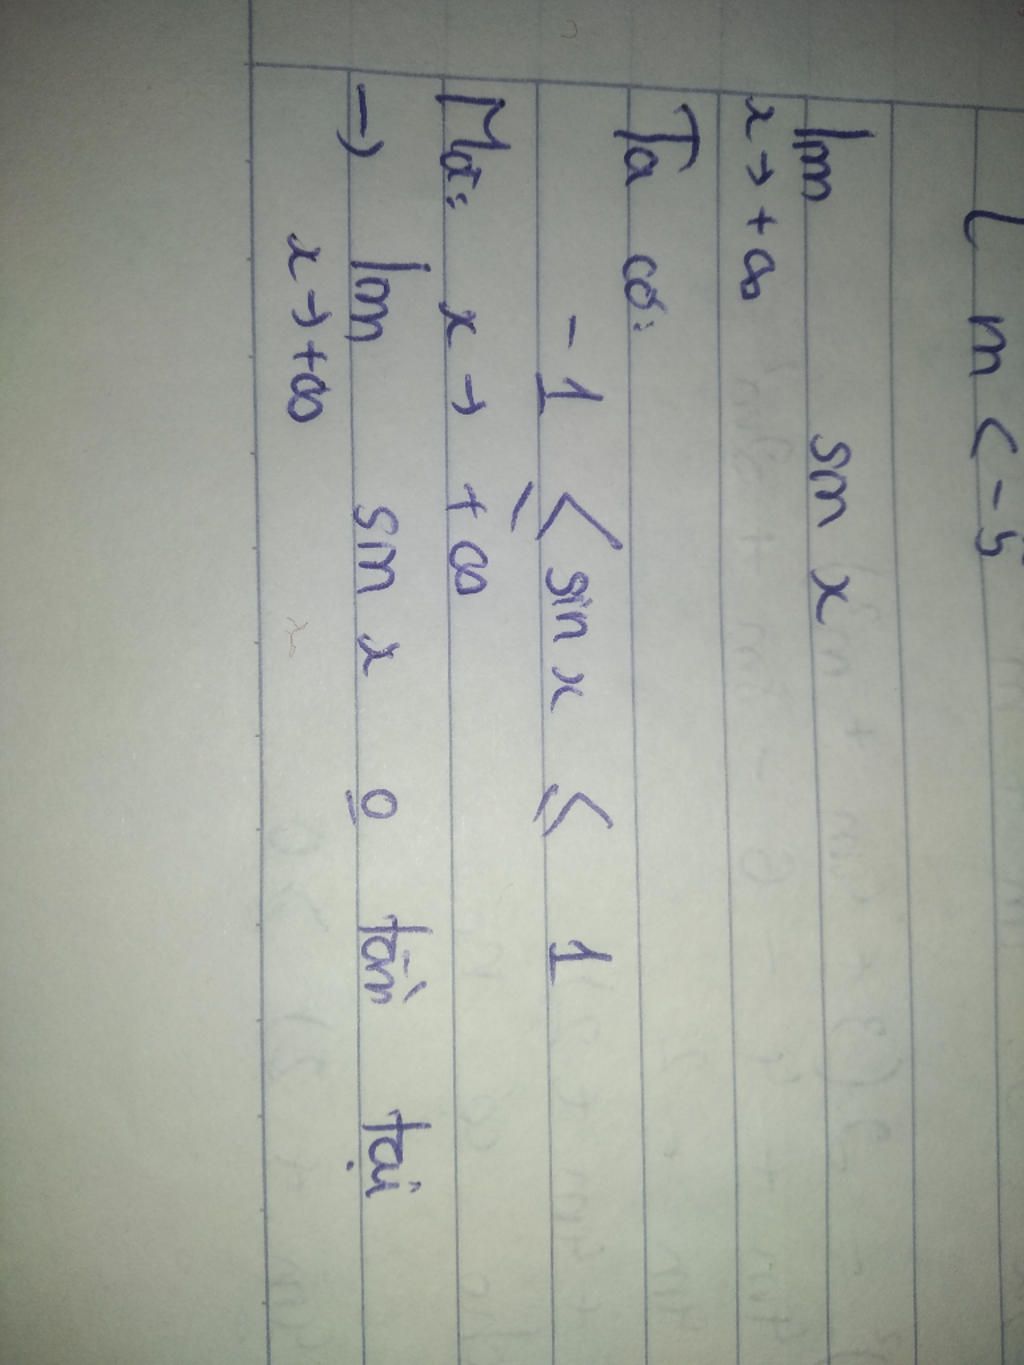 m < -5
lim sin x
x → +∞
Ta có:
-1 ≤ sin x ≤ 1
Mà: x → +∞
→ lim sin x o̲ tồn tại
x → +∞